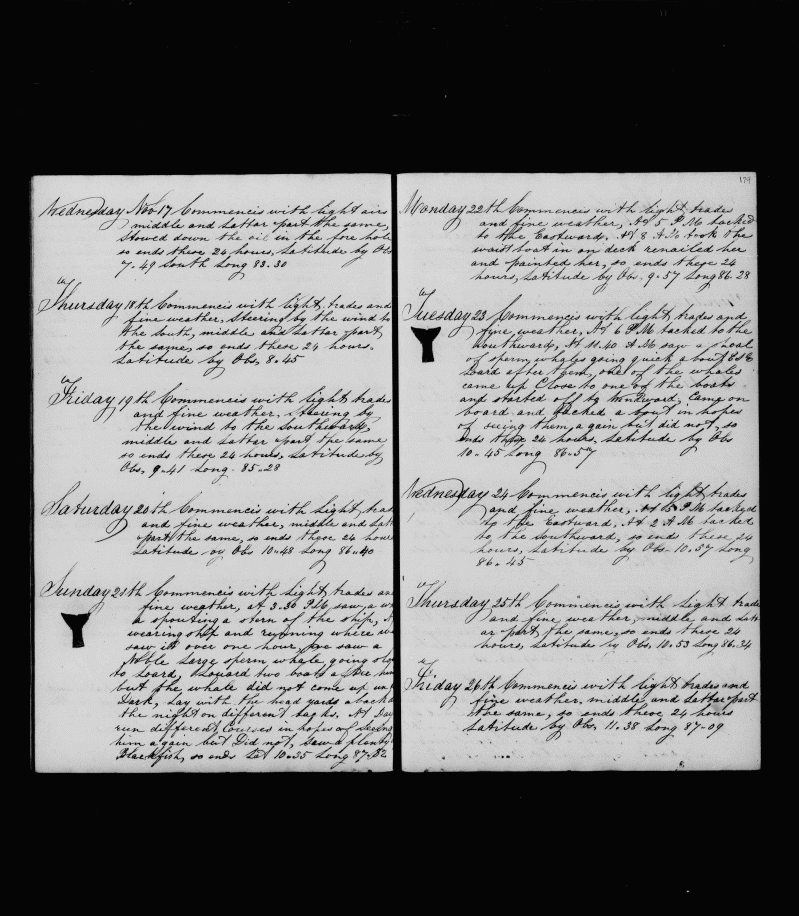 Wednesday Nov 17 Commencis with light airs
middle and Lattar part the same,
Stowed down the oil in the fore hole
so ends these 24 hours, Latitude by Obs
7.. 49 South Long 83. 30
Thursday 18th Commencis with light trades and
fine weather, Steering by the wind to
the South, middle and Lattar part
the same, so ends these 24 hours.
Latitude by Obs, 8.. 45
Friday 19th Commencis with light trades
and fine weather. stearing by
the wind to the Southward,
middle and Lattar part the same
so ends these 24 hours, Latitude by
Obs, 9.. 41 Long. 85.. 28
Saturday 20th Commencis with light trad
and fine weather, middle and Latt
part the same, so ends these 24 hours
Latitude by Obs 10..48 Long 86..40
Sunday 21th Commencis with light trades and
fine weather, at 3.30 PM saw a
a spouting a stern of the ship,
wearing ship and running where we
saw it over one hour we saw a
noble Large sperm whale going slo
to Loard, Louard two boats after him
but the whale did not come up
Dark, Lay with the head yards aback
the night on different tacks. At Day
run different courses in hopes of seeing
him again but Did not, saw a plenty
Blackfish, so ends Lat 10..35 Long 87..02
179
Monday 22th Commencis with light trades
and fine weather, At 5 PM tacked
to the Eastward, At 8 A.M took the
waist boat in on deck renailed her
and painted her, so ends these 24
hours, Latitude by Obs. 9..57 Long 86.28
Tuesday 23 Commencis with light trades and
fine weather, At 6 PM tacked to the
Southward, At 11.40 A M saw a shoal
of sperm whales going quick a bout E S E
Loard after them, one of the whales
came up Close to one of the boats
and started off to windward, Came on
board and tacked a bout in hopes
of seeing them a gain but did not, so
ends these 24 hours. Latitude by Obs
10.. 45 Long 86..57
Wednesday 24 Commencis with light trades
and fine weather, At 5 PM tacked
to the Eastward, At 2 A M tacked
to the Southward, so ends these 24
hours, Latitude by Obs. 10.57 Long
86.. 45
Thursday 25th Commencis with light trade
and fine weather, middle and Latt
ar part the same, so ends these 24
hours, Latitude by Obs, 10.53 Long 86.34
Friday 26th Commencis with light trades and
fine weather. middle and Lattar part
the same, so ends these 24 hours
Latitude by Obs. 11..38 Long 87-09